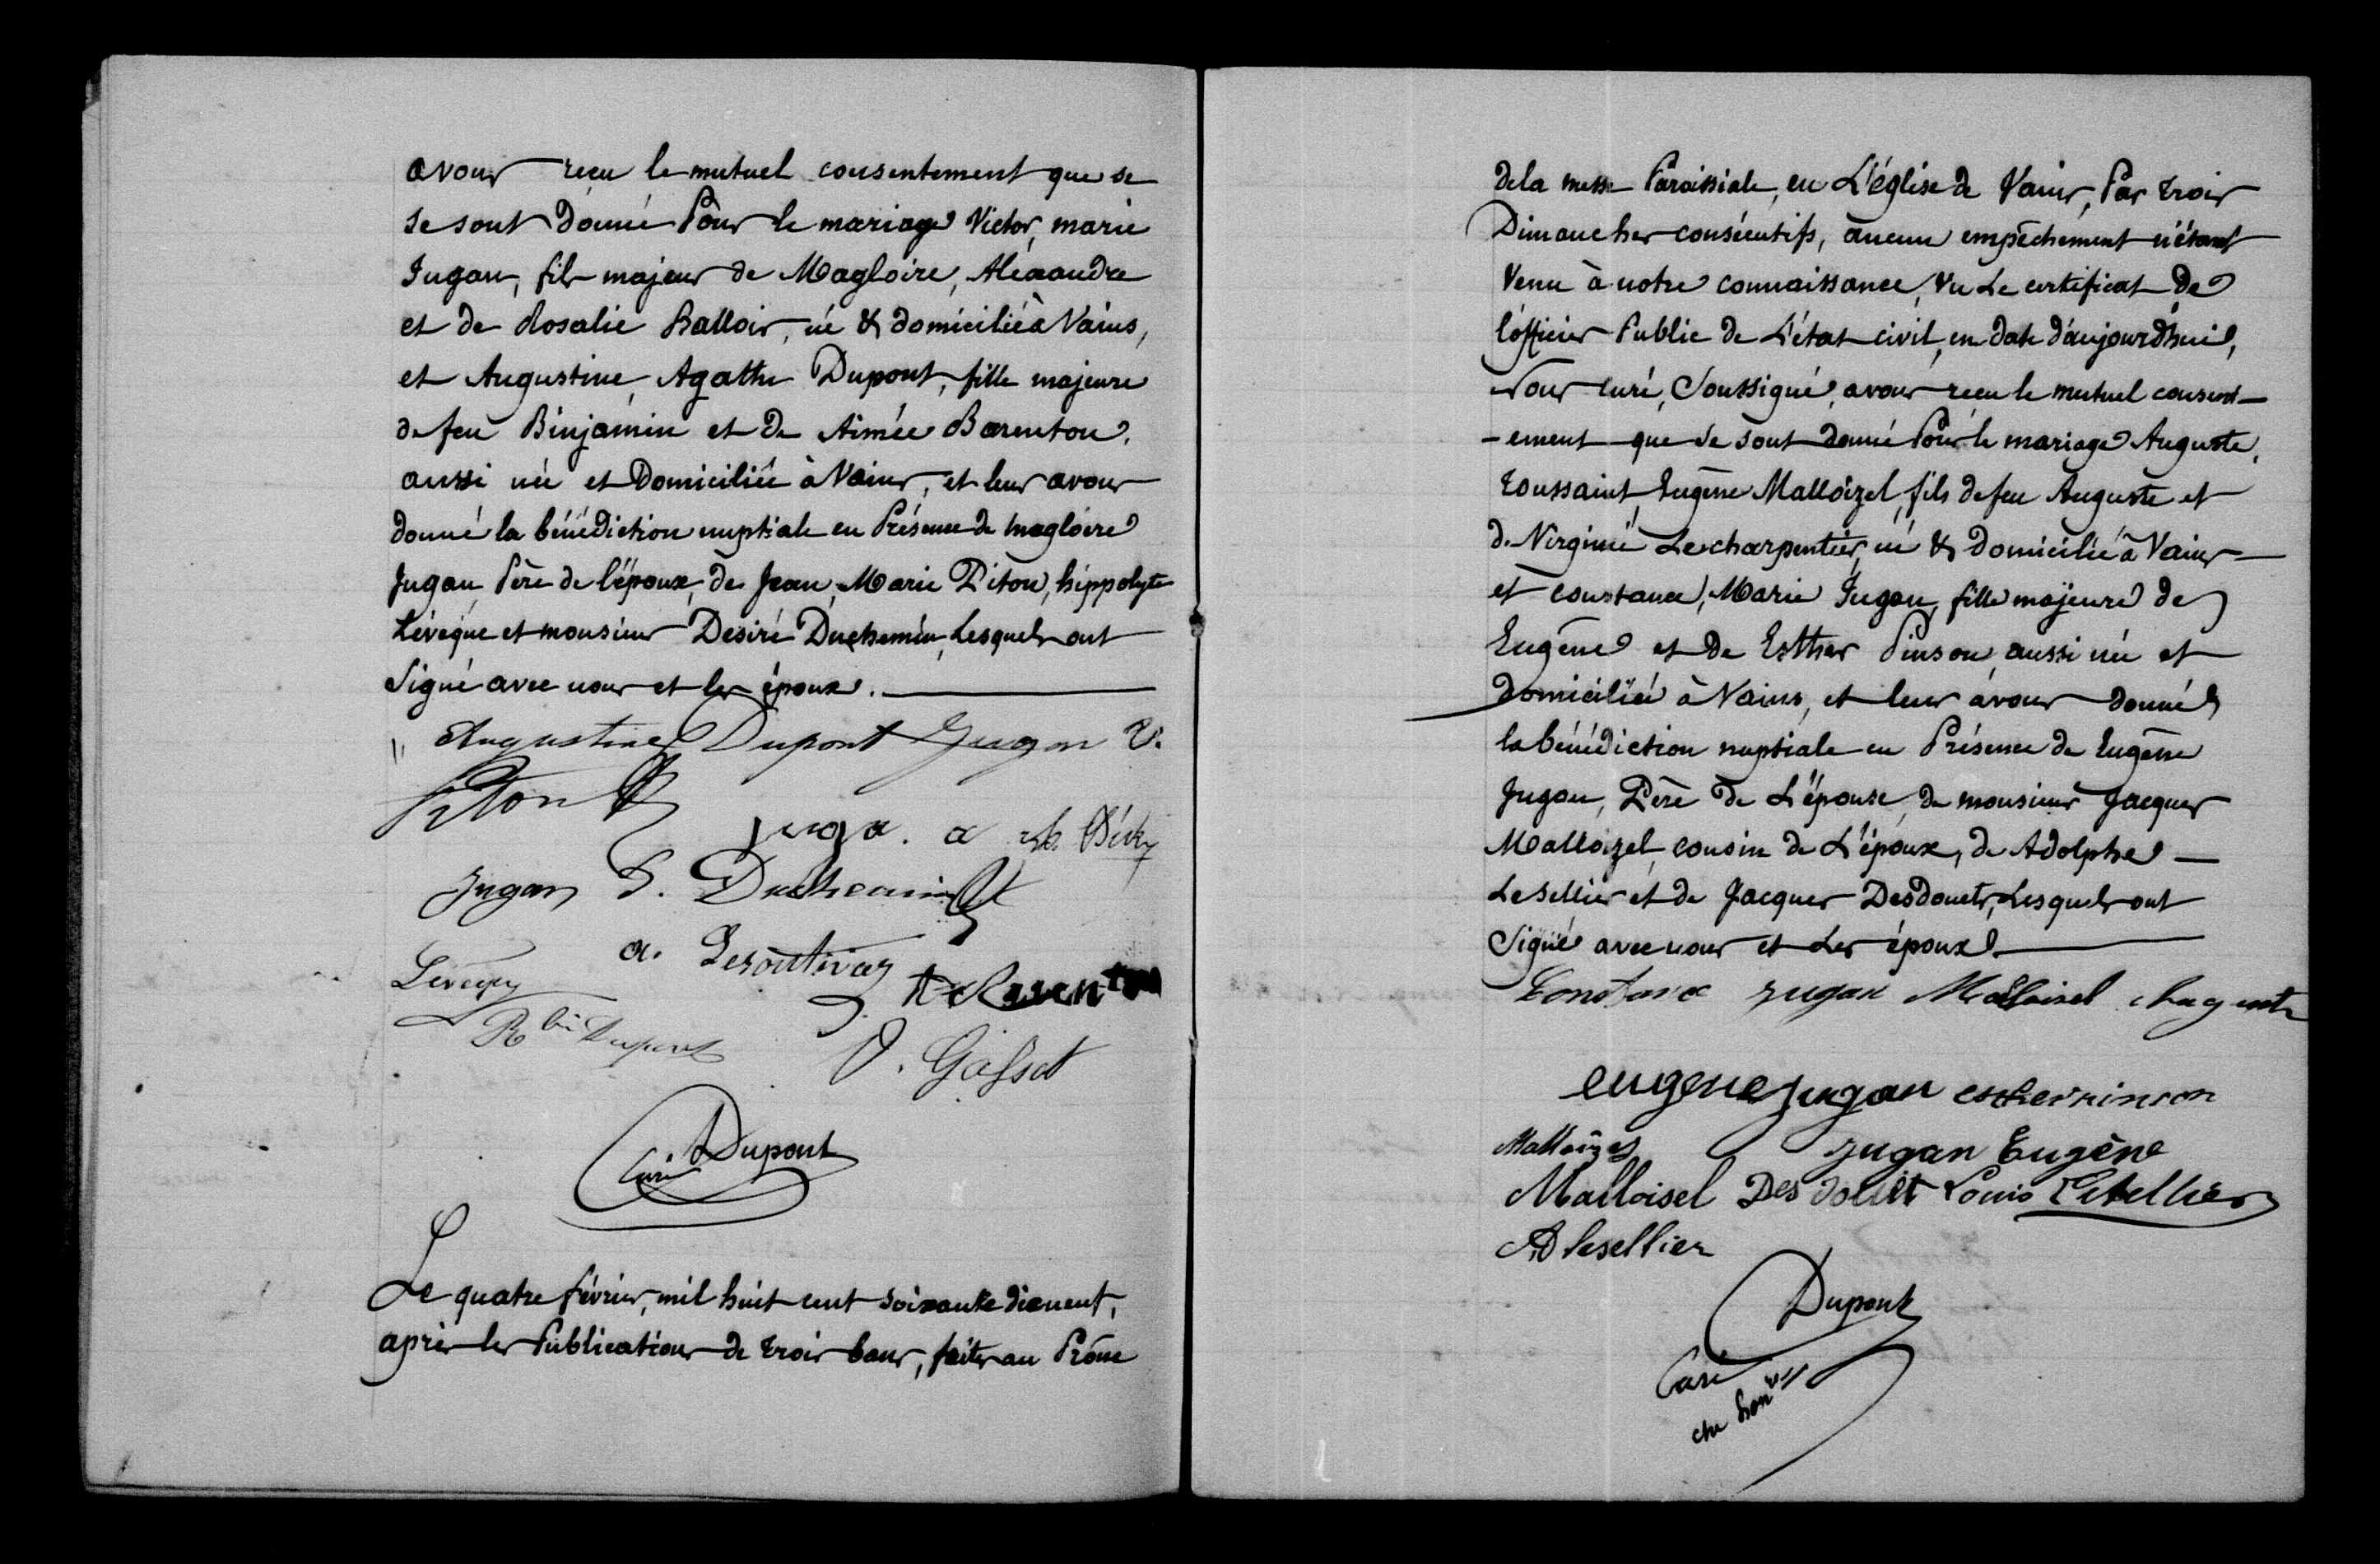 avons reçu le mutuel consentement que se
se sont donné Pour le mariage Victor, marie
Jugan, fils majeur de Magloire, Alexandre
et de Rosalie Ballois, né & domicilié à Vains,
et Augustine, Agathe Dupont, fille majeure
de feu Binjamin et de Aimée Barenton,
aussi née et Domiciliée à Vains, et leur avons
donné la bénédiction nuptiale en Présence de magloire
Jugan, Père de l'époux, de Jean, Marie Piton, hippolyte
Lévêque et monsieur Desiré Duchemin, Lesquels ont
Signé avec nous et les époux.
Augustine Dupont Jugan V.
Piton
Jugan D. Duchemin
a. Lesoutivier
Lévêque
Dupont
V. Gasset
Dupont
Curé
Le quatre février, mil huit cent soixante dixneuf,
après les Publications de trois bans, faites au Prône
de la messe Paroissiale, en L'église de Vains, Par trois
Dimanches consécutifs, aucun empêchement n'étant
Venu à notre connaissance, Vu Le certificat de
l'officier Public de L'état civil, en date d'aujourd'hui,
Nous curé, Soussigné, avons reçu le mutuel consent-
-ement que se sont donné Pour le mariage Auguste,
Toussaint, Eugène Malloizel, fils de feu Auguste et
de Virginie Lecharpentier, né & domicilié à Vains
et constance, Marie Jugan, fille majeure de
Eugène et de Esther Pinson, aussi née et
Domiciliée à Vains, et leur avons donné
la bénédiction nuptiale en Présence de Eugène
Jugan, Père de L'épouse, de monsieur Jacques
Malloizel, cousin de L'époux, de Adolphe
Lesellier et de Jacques Desdouets, Lesquels ont
Signé avec nous et Les époux.
Constance Jugan Malloisel Auguste
eugene jugan esther pinson
Malloizel Jugan Eugène
Malloisel Desdouet Louis Letellier
AD lesellier
Dupont
Curé
che hon